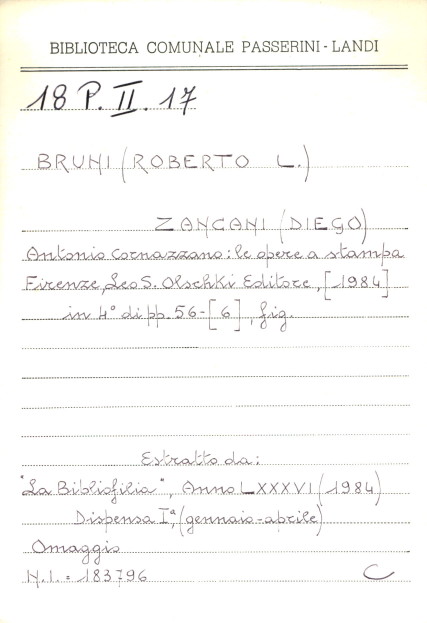 BIBLIOTECA COMUNALE PASSERINI-LANDI
18 P. II. 17
BRUNI (ROBERTO L.)
ZANCANI (DIEGO)
Antonio Cornazzano: le opere a stampa
Firenze, Leo S. Olschki Editore, [1984]
in 4° di pp. 56-[6], fig.
Estratto da:
"La Bibliofilia", Anno LXXXVI (1984)
Dispensa Iª, (gennaio-aprile)
Omaggio
N.I. = 183796 C